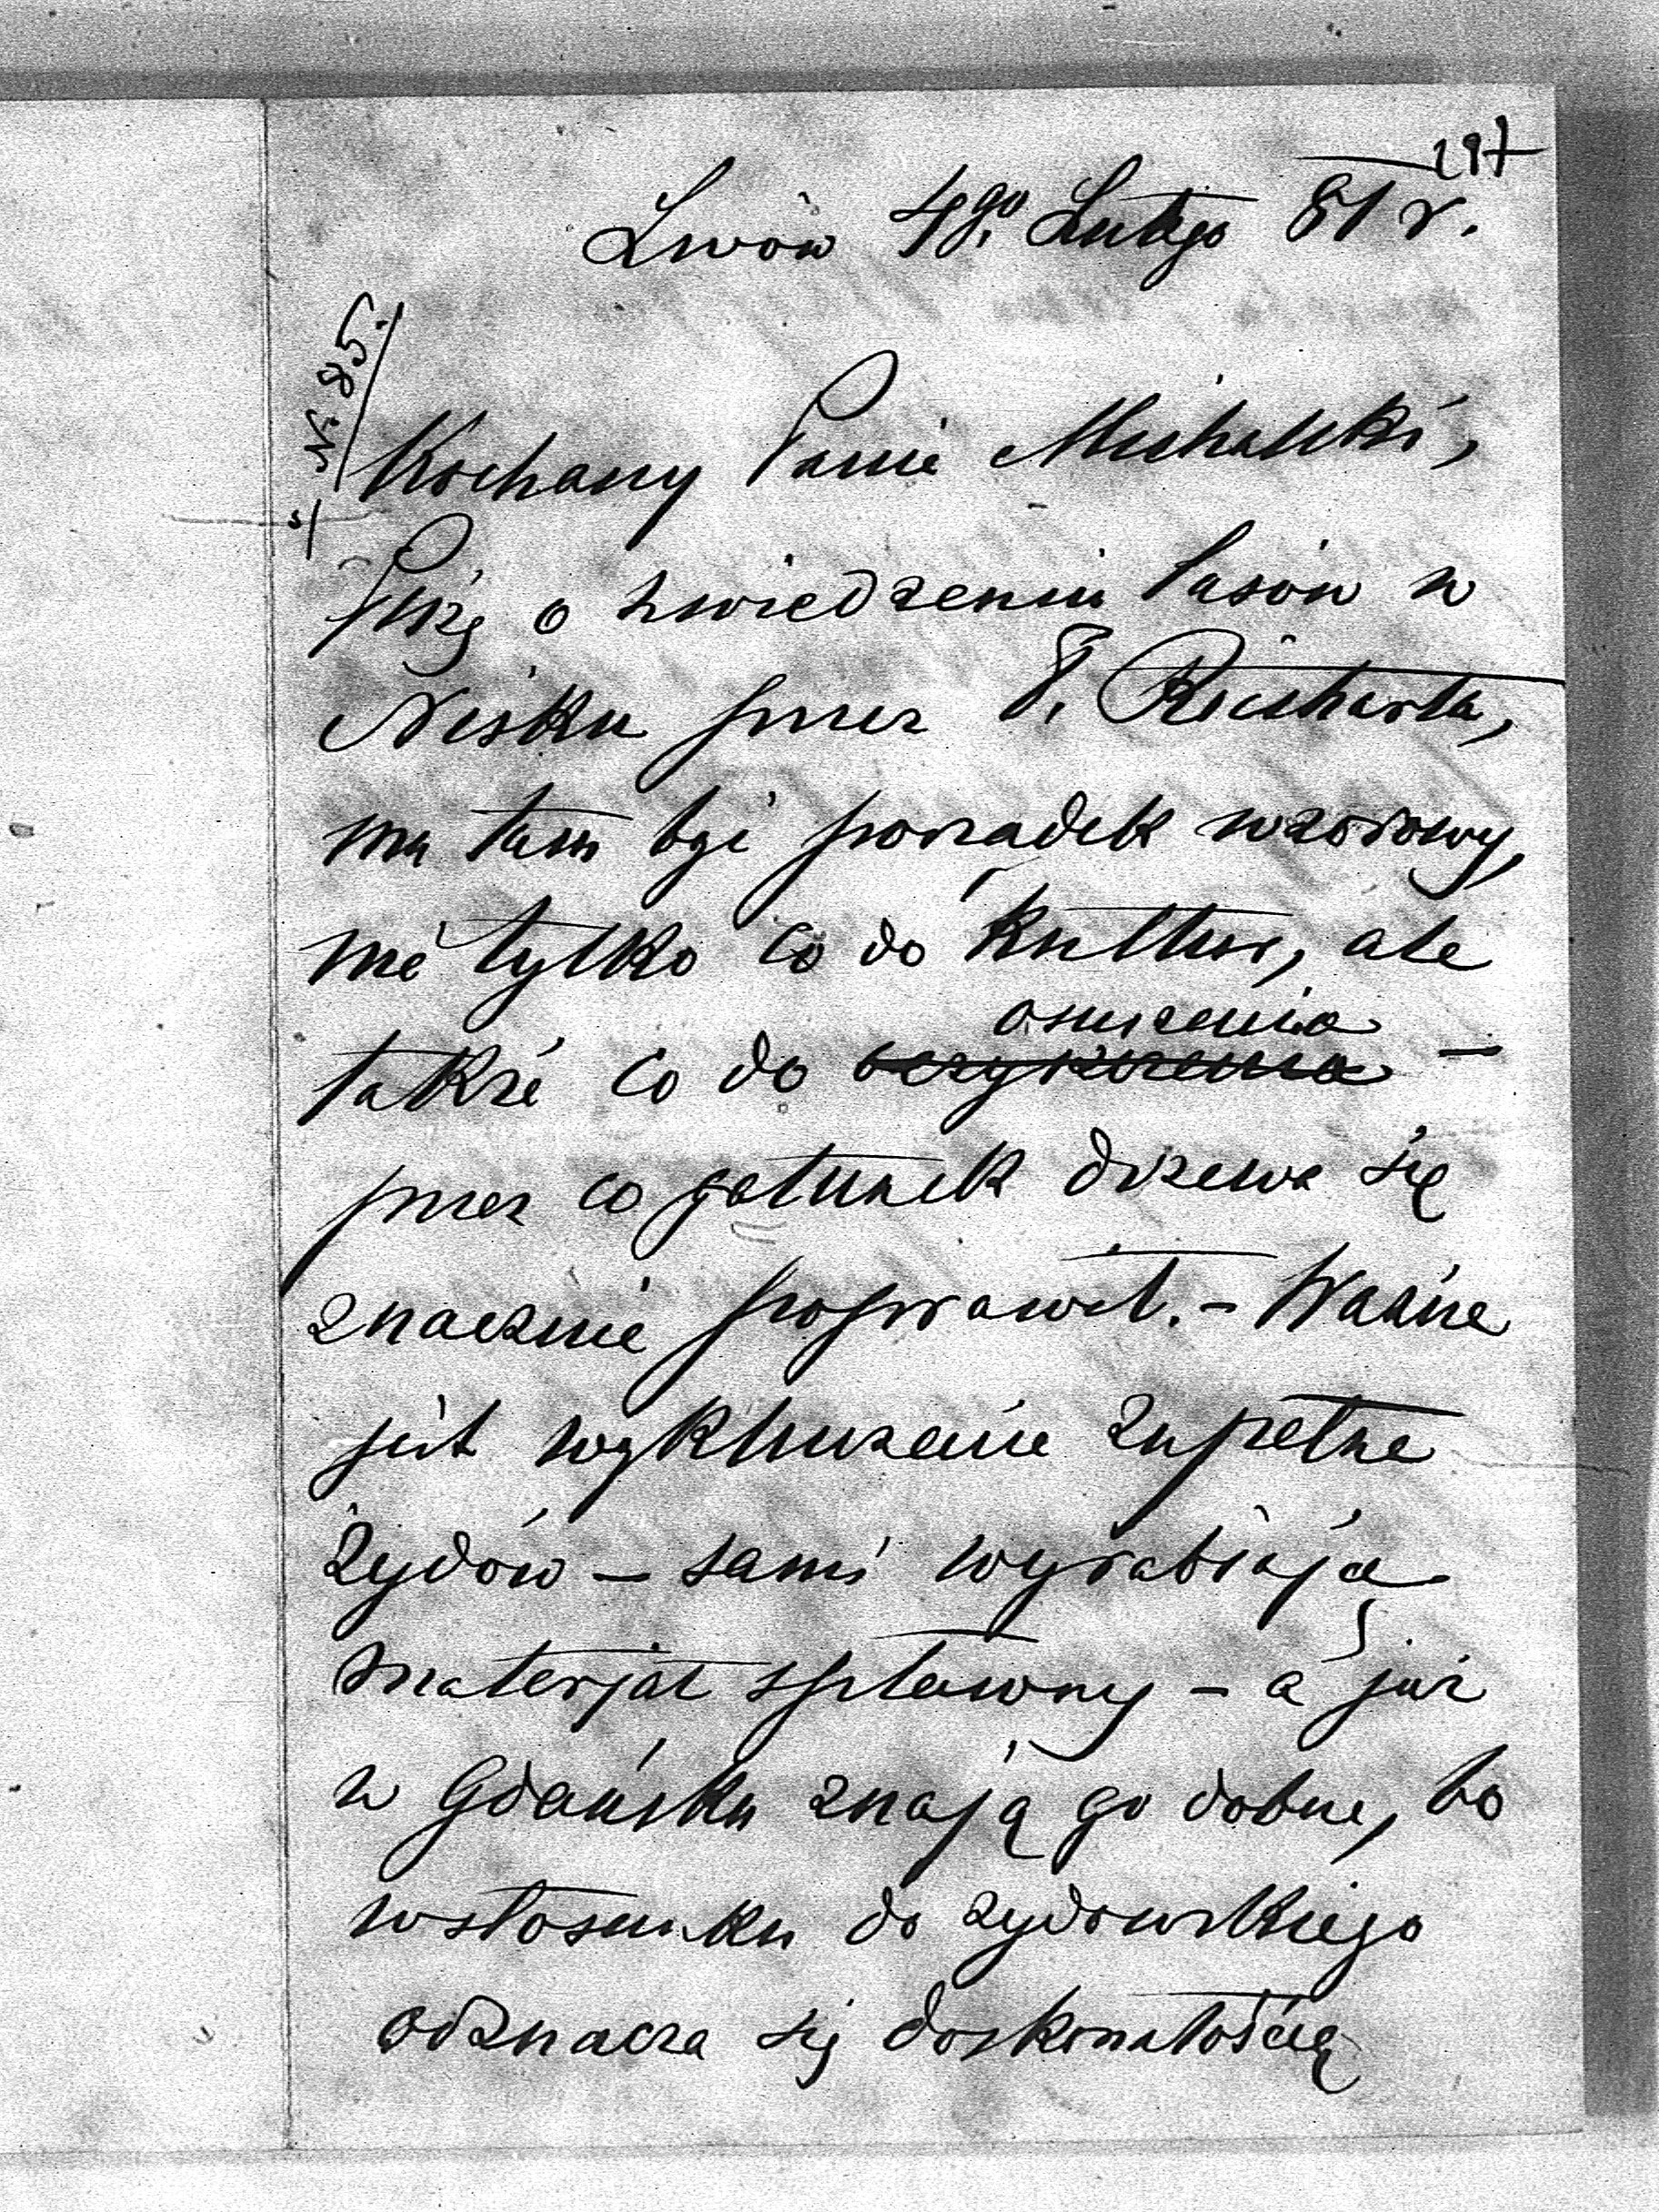 197
Lwów 4go. Lutego 81 r.
N. 85.
Kochany Panie Michalski,
Piszę o zwiedzeniu lasów w
Nisku przez P. Richarda,
ma tam być porządek wzorowy,
nie tylko co do kultur, ale
także co do osuszenia –
przez co gatunek drzewa się
znacznie poprawił. – Ważne
jest wykluczenie zupełne
Żydów – sami wyrabiają
materjał spławny – a już
w Gdańsku znają go dobrze, bo
wstosunku do żydowskiego
odznacza się doskonałością